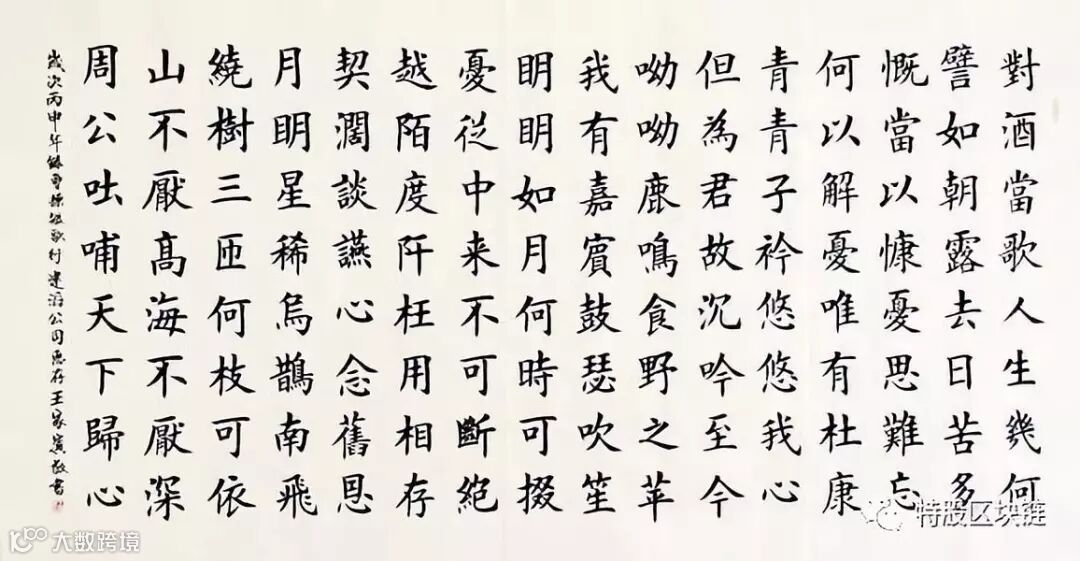 對酒當歌人生幾何
譬如朝露去日苦多
慨當以慷憂思難忘
何以解憂唯有杜康
青青子衿悠悠我心
但為君故沉吟至今
呦呦鹿鳴食野之苹
我有嘉賓鼓瑟吹笙
眀眀如月何時可掇
憂従中来不可斷絕
越陌度阡枉用相存
契濶談讌心念舊恩
月眀星稀烏鵲南飛
繞樹三匝何枝可依
山不厭髙海不厭深
周公吐哺天下歸心
歲次丙申年錄曹操短歌行建公司惠存王家賓敬書
特股区块链
大数跨境